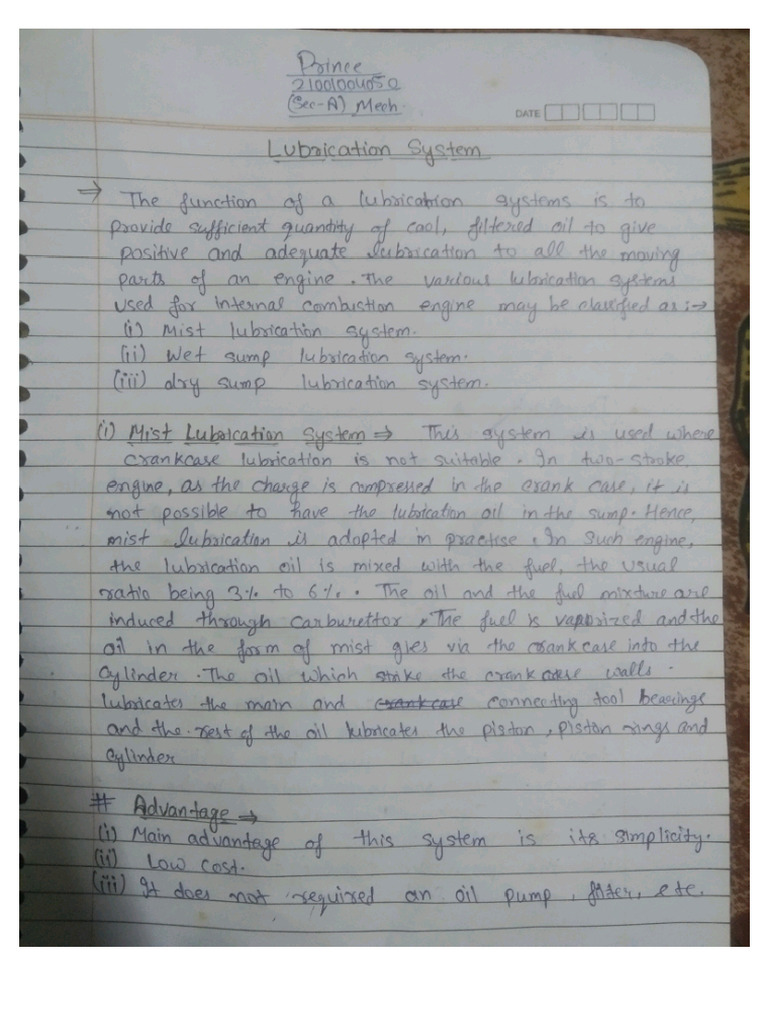 Prince
21001004050
(Sec-A) Mech.
DATE
Lubrication System
→ The function of a lubrication systems is to
provide sufficient quantity of cool, filtered oil to give
positive and adequate lubrication to all the moving
parts of an engine. The various lubrication systems
used for internal combustion engine may be classified as :→
(i) Mist lubrication system.
(ii) Wet sump lubrication system.
(iii) dry sump lubrication system.
(i) Mist Lubrication System ⇒ This system is used where
crankcase lubrication is not suitable. In two-stroke
engine, as the charge is compressed in the crank case, it is
not possible to have the lubrication oil in the sump. Hence,
mist lubrication is adopted in practise. In such engine,
the lubrication oil is mixed with the fuel, the usual
ratio being 3% to 6%. The oil and the fuel mixture are
induced through carburettor, The fuel is vaporized and the
oil in the form of mist goes via the crankcase into the
Cylinder. The oil which strike the crank case walls.
lubricates the main and crankcase connecting tool bearings
and the rest of the oil lubricates the piston, piston rings and
Cylinder
# Advantage →
(i) Main advantage of this system is its simplicity.
(ii) Low cost.
(iii) It does not required an oil pump, filter, etc.